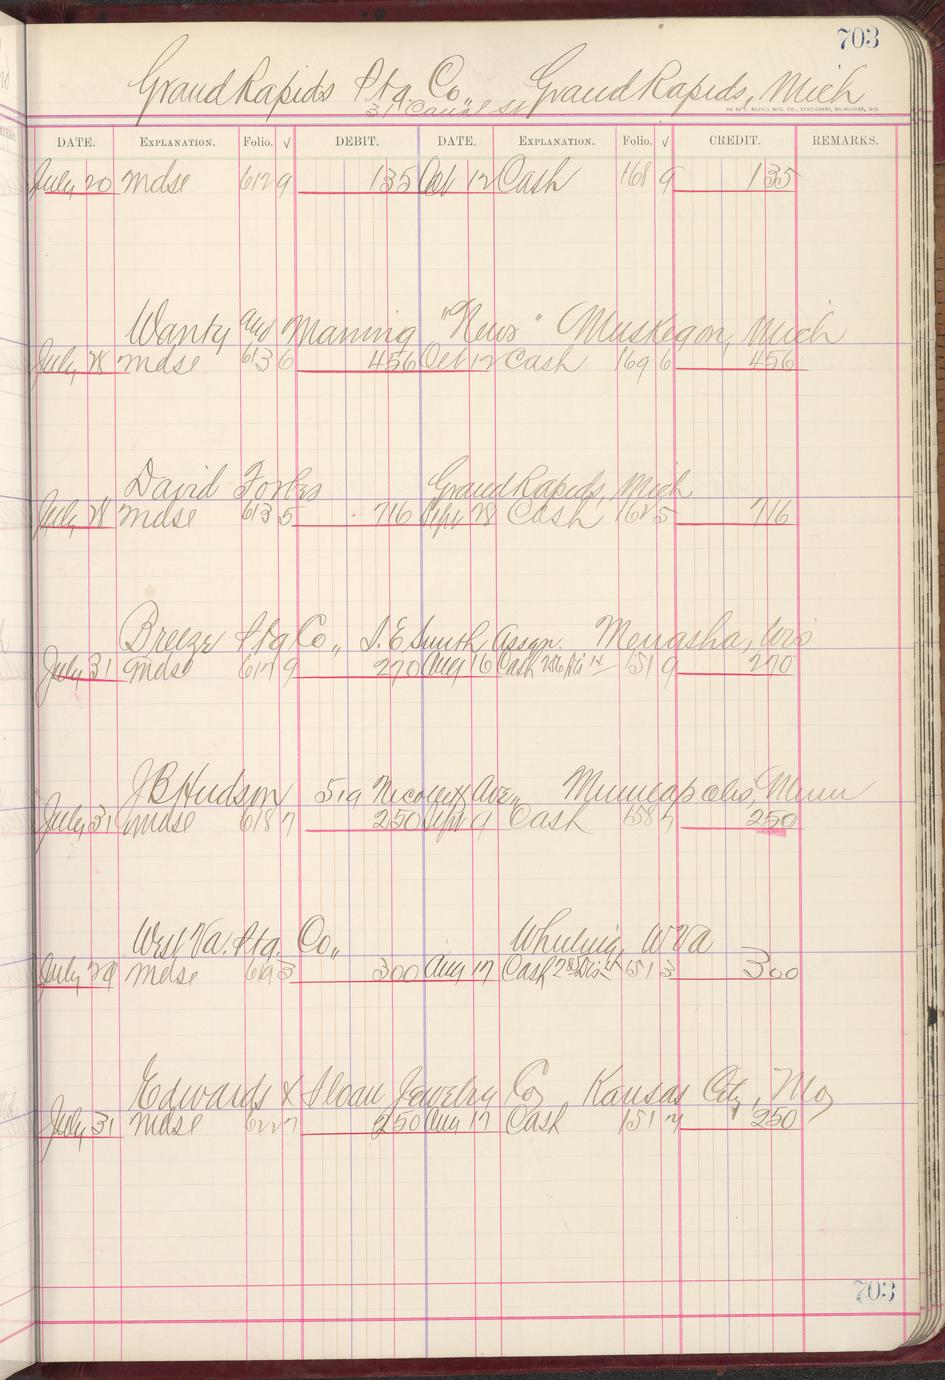 703
Grand Rapids Sta Co,, Grand Rapids, Mich
31 Canal St
DATE. EXPLANATION. Folio. √ DEBIT. DATE. EXPLANATION. Folio. √ CREDIT. REMARKS.
July 20 Mdse 612 9 135 Oct 12 Cash 168 9 135
Wanty and Manning "News" Muskegon, Mich
July 28 Mdse 613 6 456 Oct 12 Cash 169 6 456
David Forbes Grand Rapids, Mich
July 28 Mdse 613 5 716 Sept 28 Cash 162 5 716
Breeze Sta Co,, S. E Smith Assgn. Menasha, Wis
July 31 Mdse 617 9 270 Aug 16 Cash 151 9 270
J B Hudson 519 Nicollett Ave,, Minneapolis, Minn
July 31 Mdse 618 7 250 Sept 9 Cash 158 7 250
West Va. Sta. Co,, Wheeling, W Va
July 29 Mdse 619 3 300 Aug 17 Cash 151 3 300
Edwards & Sloan Jewelry Co Kansas City, Mo
July 31 Mdse 622 7 250 Aug 17 Cash 151 7 250
703